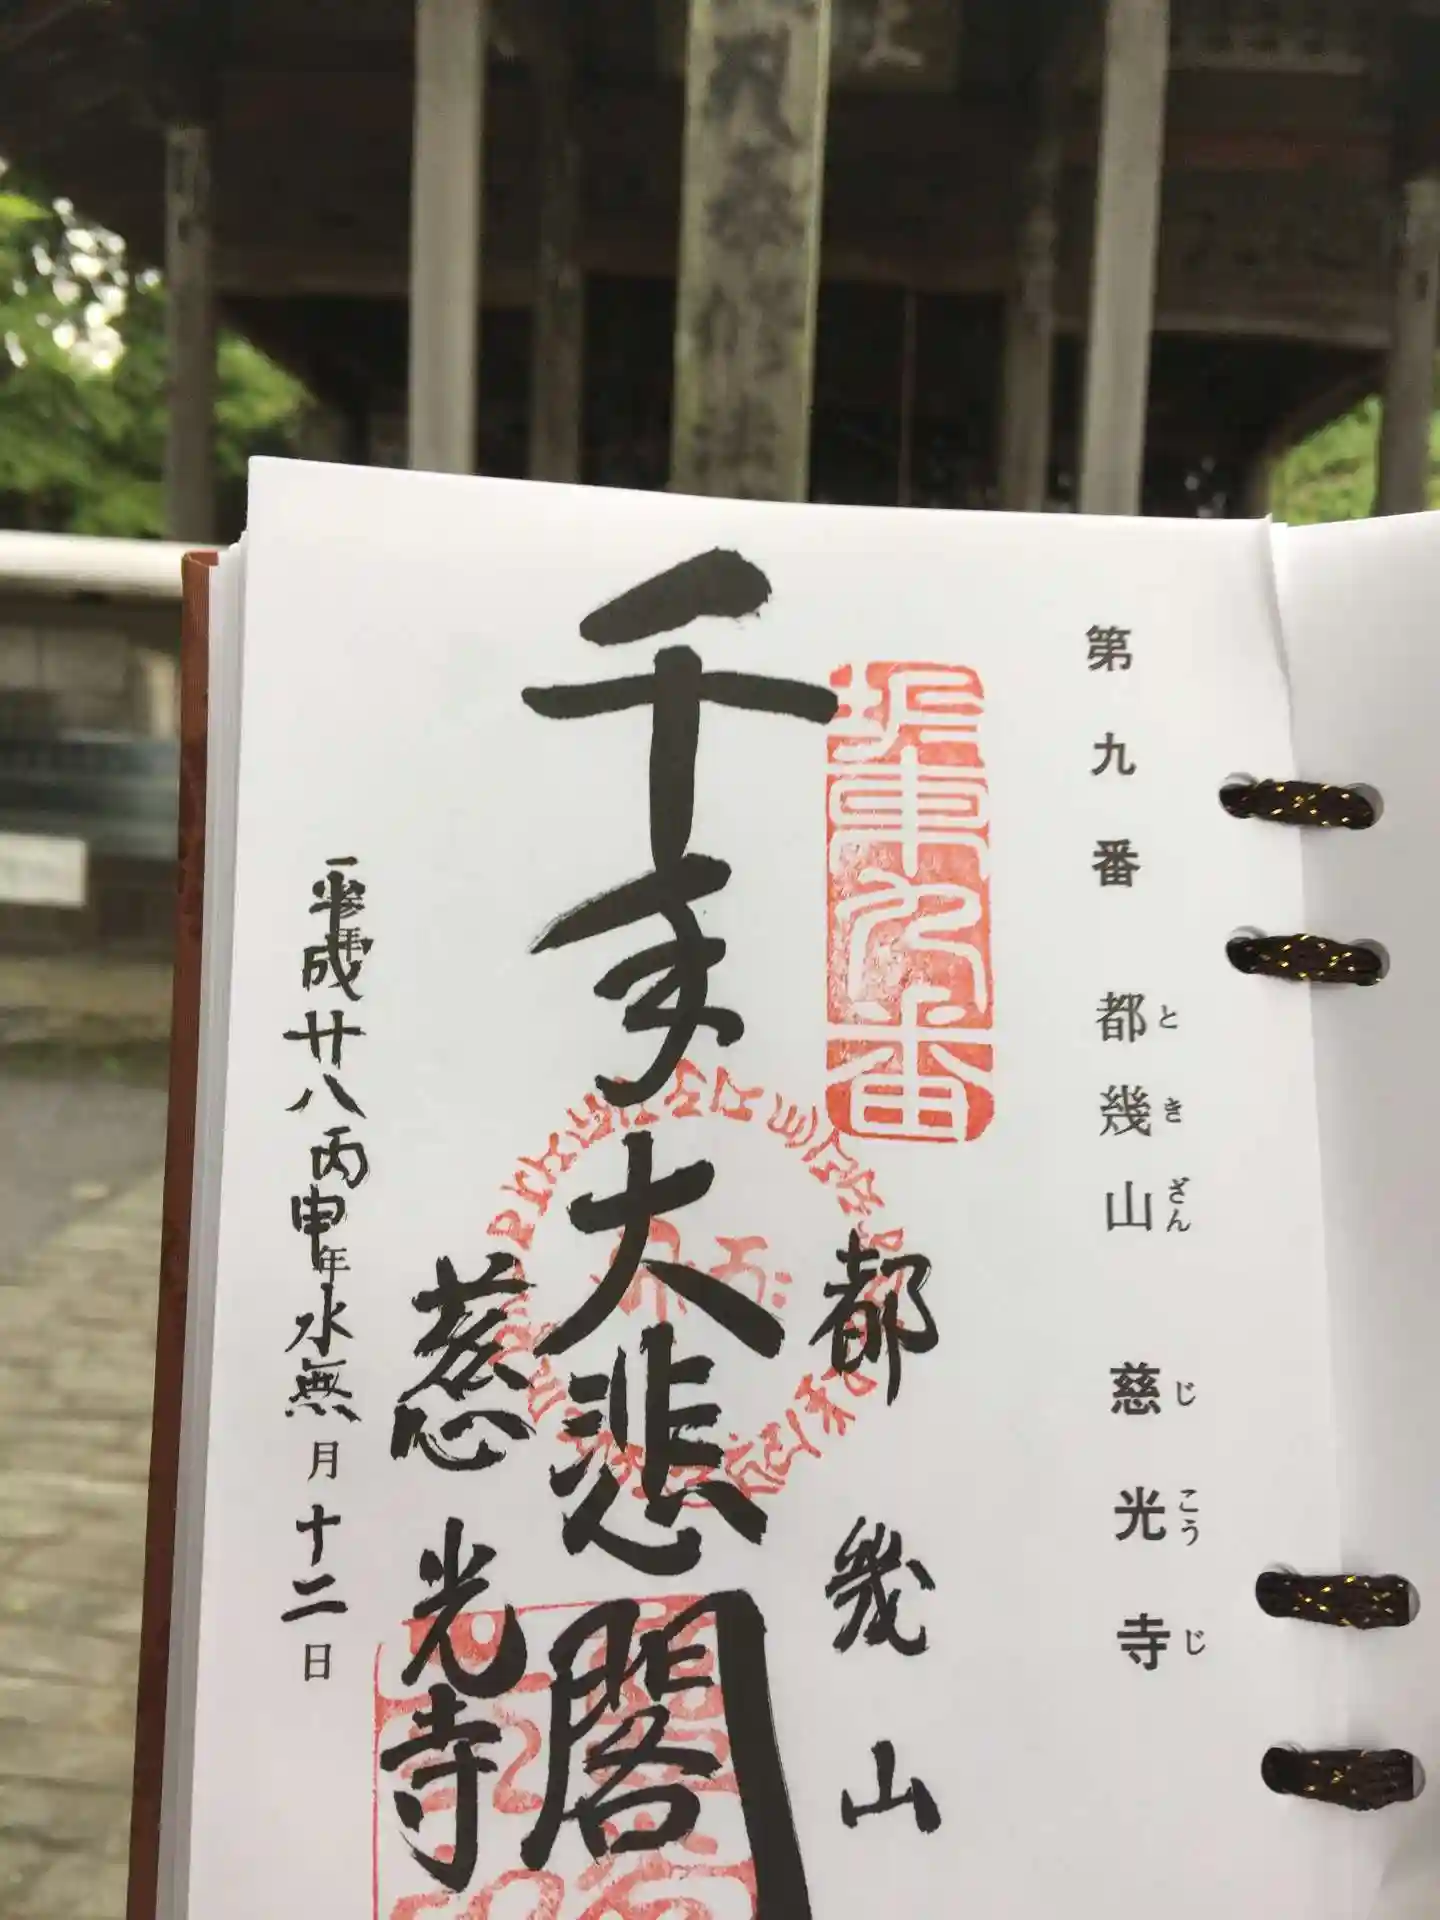 第九番 都幾山 慈光寺
と き ざん じ こう じ
坂東九番
都幾山
千手大悲閣
慈光寺
平成廿八丙申年水無月十二日
参拝